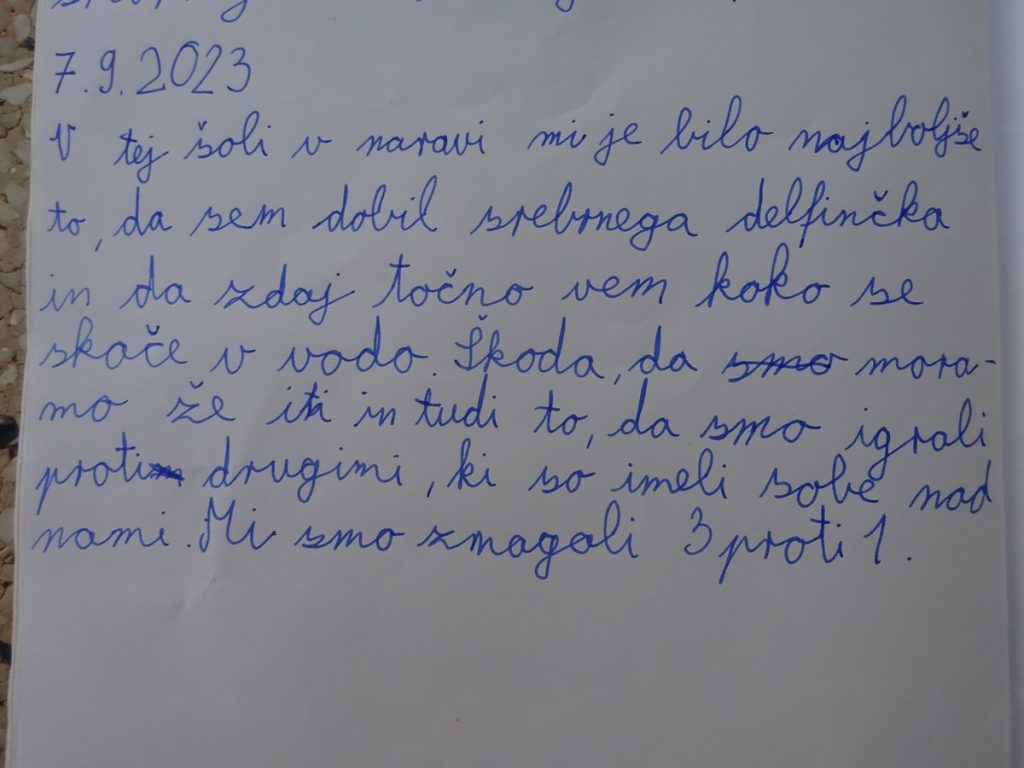 7.9.2023
V tej šoli v naravi mi je bilo najboljše
to, da sem dobil srebrnega delfinčka
in da zdaj točno vem koko se
skače v vodo. Škoda, da smo mora-
mo že iti in tudi to, da smo igrali
proti drugimi, ki so imeli sobe nad
nami. Mi smo zmagali 3 proti 1.